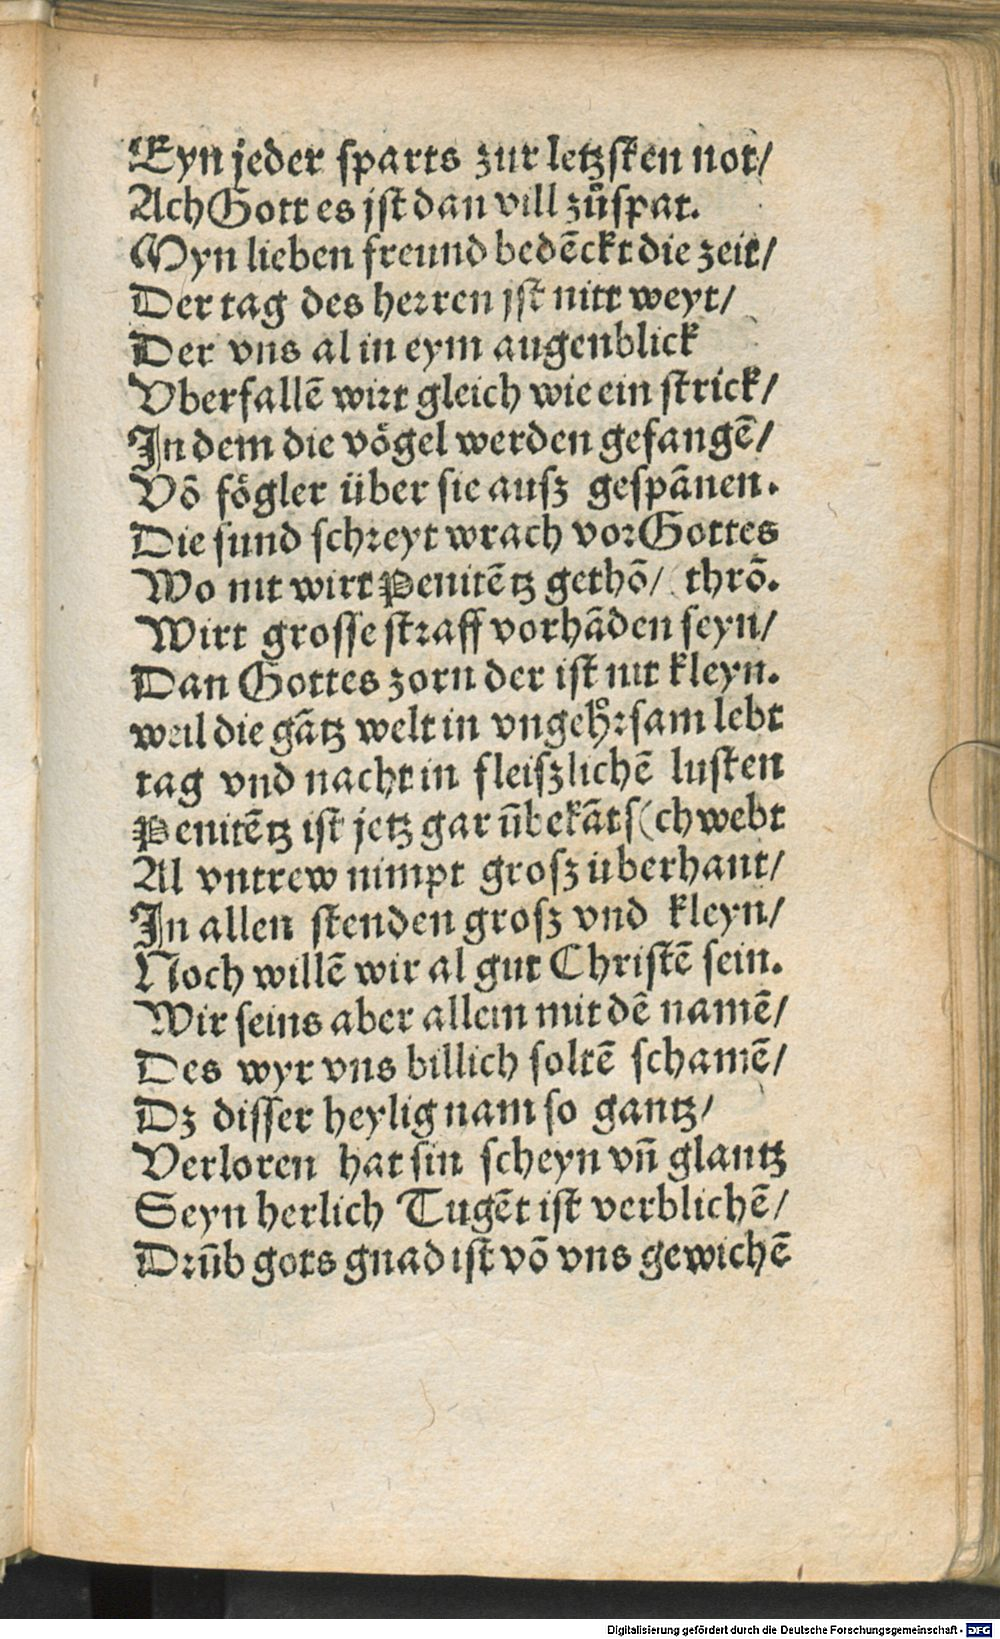 Eyn jeder sparts zur letzsten not/
Ach Gott es jst dan vill zůspat.
Myn lieben freund bedēckt die zeit/
Der tag des herren jst nitt weyt/
Der vns al in eym augenblick
Vberfallē wirt gleich wie ein strick/
In dem die vögel werden gefangē/
Vō fögler über sie ausz gespānen.
Die sund schreyt wrach vor Gottes
Wo nit wirt Penitētz gethō/ (thrō.
Wirt grosse straff vorhāden seyn/
Dan Gottes zorn der ist nit kleyn.
weil die gātz welt in vngehorsam lebt
tag vnd nacht in fleiszlichē lusten
Penitētz ist jetz gar ūbekāts (chwebt
Al vntrew nimpt grosz überhant/
In allen stenden grosz vnd kleyn/
Noch willē wir al gut Christē sein.
Wir seins aber allein mit dē namē/
Des wyr vns billich soltē schamē/
Dz disser heylig nam so gantz/
Verloren hat sin scheyn vn̄ glantz
Seyn herlich Tugēt ist verblichē/
Drūb gots gnad ist vō vns gewichē
Digitalisierung gefördert durch die Deutsche Forschungsgemeinschaft - DFG